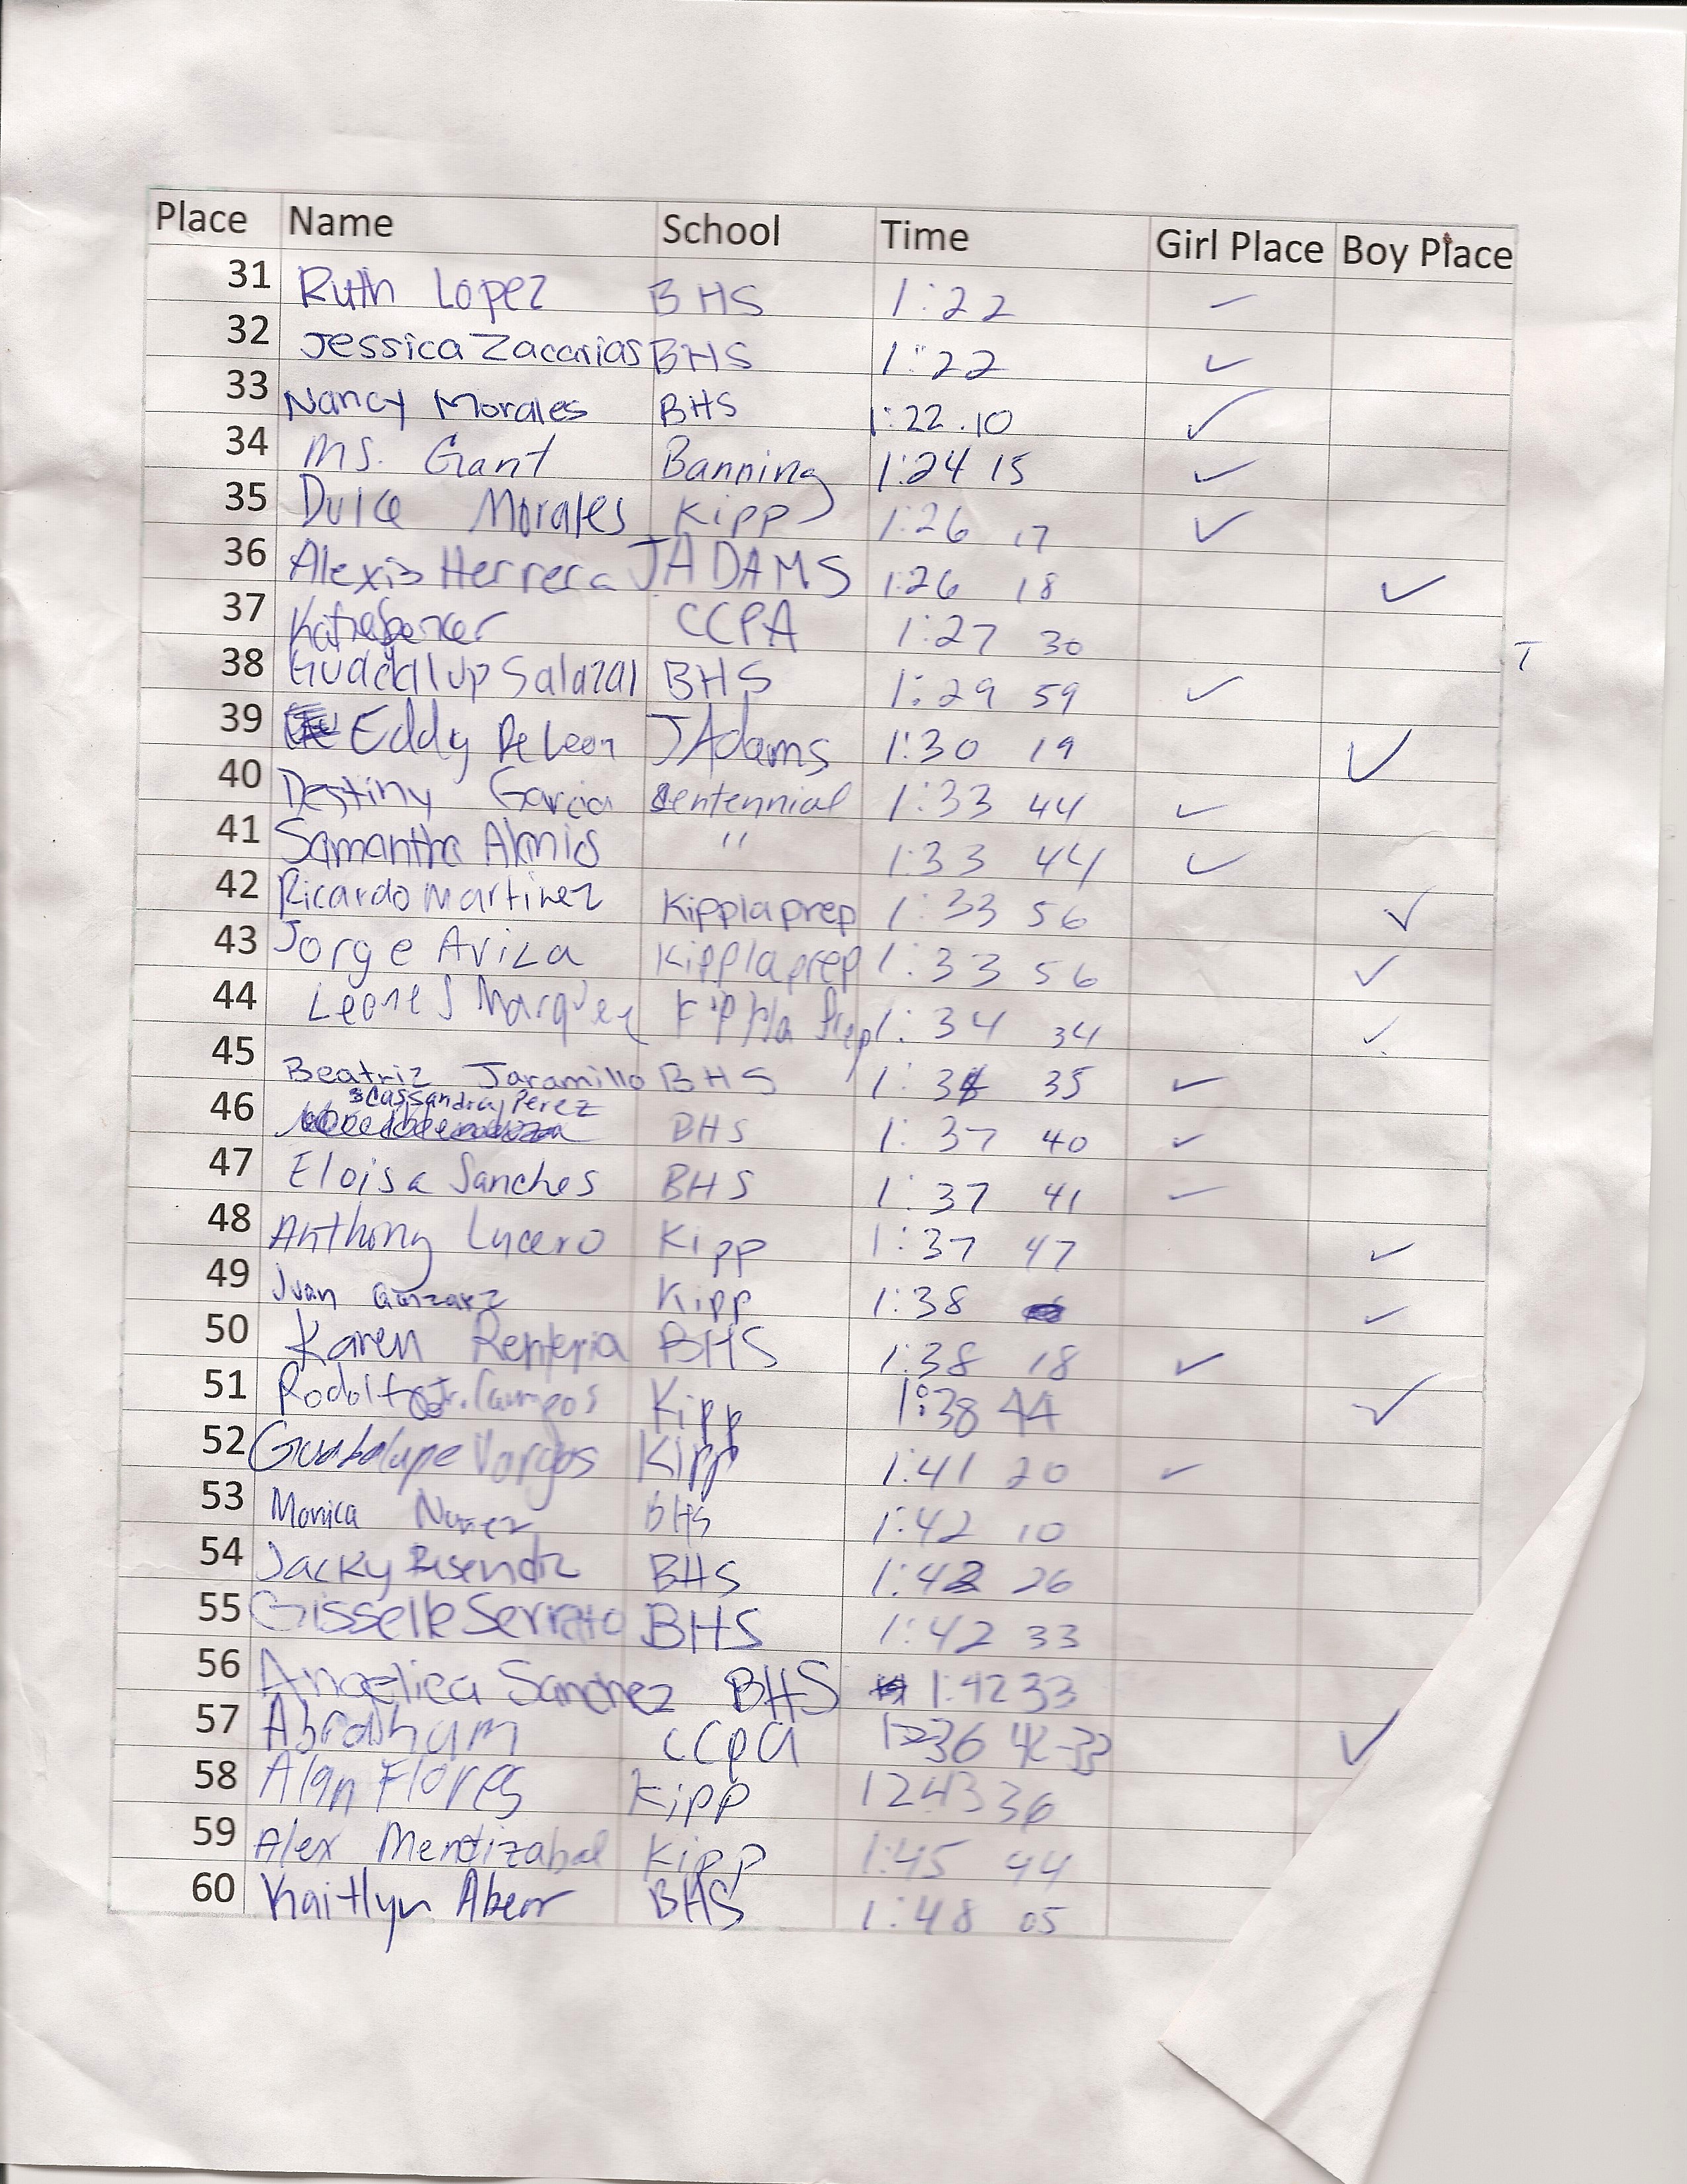 Place Name School Time Girl Place Boy Place
31 Ruth Lopez BHS 1:22
32 Jessica Zacarias BHS 1:22 ✓
33 Nancy Morales BHS 1:22.10 ✓
34 Ms. Grant Banning 1:24 15 ✓
35 Dulce Morales Kipp 1:26 17 ✓
36 Alexis Herrera JADAMS 1:26 18 ✓
37 CCPA 1:27 30 T
38 Guadalup Salazar BHS 1:29 59 ✓
39 Eddy De Leon JAdams 1:30 19 ✓
40 Destiny Garcia Centennial 1:33 44 ✓
41 Samantha " 1:33 44 ✓
42 Ricardo Martinez Kipplaprep 1:33 56 ✓
43 Jorge Avila Kipplaprep 1:33 56 ✓
44 Leonel Marquez Kippla Prep 1:34 34 ✓
45 Beatriz Jaramillo BHS 35 ✓
46 Cassandra Perez BHS 1:37 40 ✓
47 Eloisa Sanches BHS 1:37 41 ✓
48 Anthony Lucero Kipp 1:37 47 ✓
49 Juan Kipp 1:38 ✓
50 Karen Renteria BHS 1:38 18 ✓
51 Rodolfo Jr. Campos Kipp 1:38 44 ✓
52 Guadalupe Vargas Kipp 1:41 20 ✓
53 Monica Nunez BHS 1:42 10
54 Jacky Resendiz BHS 1:42 26
55 Gisselle Serrato BHS 1:42 33
56 Angelica Sanchez BHS 1:42 33
57 Abraham CCPA ✓
58 Alan Flores Kipp 36
59 Alex Mendizabal Kipp 1:45 44
60 Kaitlyn BHS 1:48 05